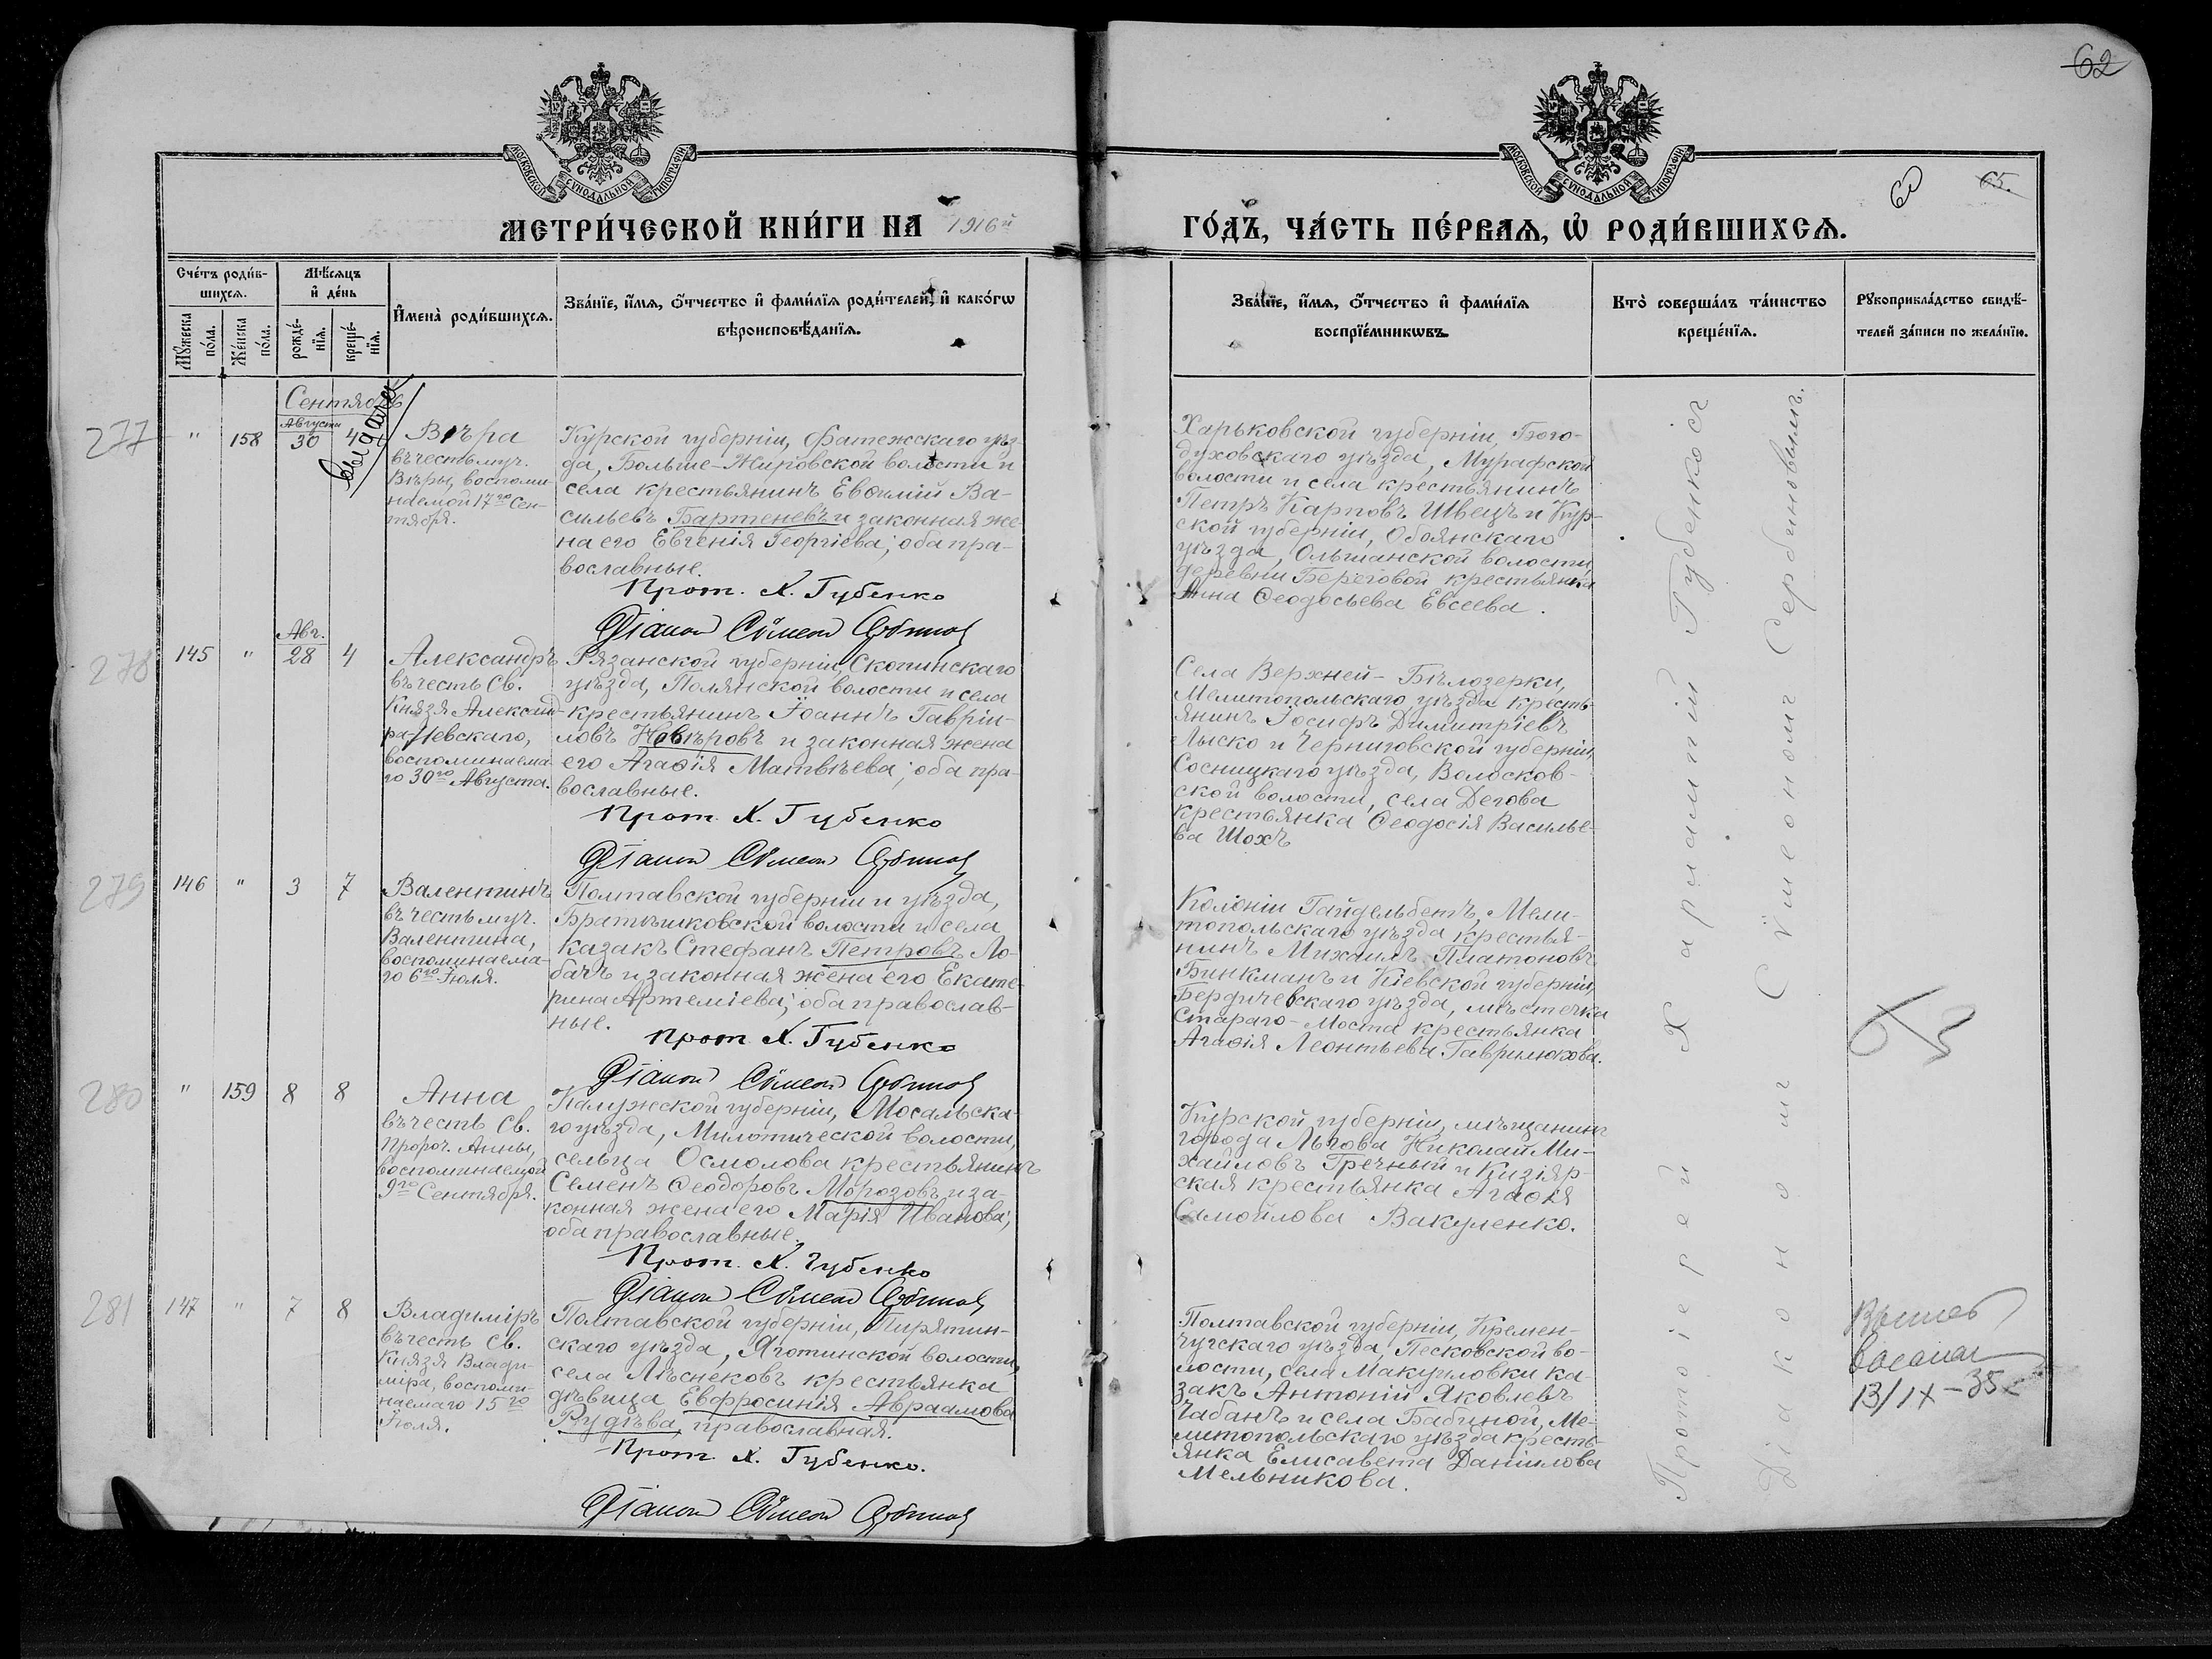 62
МОСКОВСКОЙ СѴНОДАЛЬНОЙ ТИПОГРАФІИ
МОСКОВСКОЙ СѴНОДАЛЬНОЙ ТИПОГРАФІИ
65.
МЕТРИ́ЧЕСКОЙ КНИ́ГИ НА 1916й
ГО́ДЪ, ЧА́СТЬ ПЕ́РВАѦ, Ѡ҆ РОДИ́ВШИХСѦ.
Сче́тъ роди́в-
шихсѧ.
Мꙋ́жеска
по́ла.
Же́нска
по́ла.
Мѣ́сѧцъ
и҆ де́нь
рожде́-
нїѧ.
креще́-
нїѧ.
И҆мена̀ роди́вшихсѧ.
Зва́нїе, и҆́мѧ, ѻ҆́тчество и҆ фами́лїѧ роди́телей, и҆ како́гѡ
вѣроисповѣ́данїѧ.
Зва́нїе, и҆́мѧ, ѻ҆́тчество и҆ фами́лїѧ
воспрїе́мникѡвъ.
Кто̀ соверша́лъ та́инство
креще́нїѧ.
Рꙋкоприкла́дство свидѣ́-
телей за́писи по жела́нїю.
Сентябрь
выдано
277
"
158
Августа
30
4
Вѣра
въ честь муч.
Вѣры, воспоми-
наемой 17го Сен-
тября.
Курской губерніи, Фатежскаго уѣз-
да, Больше-Жировской волости и
села крестьянинъ Евѳимій Ва-
сильевъ Бартеневъ и законная же-
на его Евгенія Георгіева; оба пра-
вославные.
Прот. Х. Губенко
Діаконъ Сѵмеонъ Сербиновъ
Харьковской губерніи, Бого-
духовскаго уѣзда, Мурафской
волости и села крестьянинъ
Петръ Карповъ Швецъ и Кур-
ской губерніи, Обоянскаго
уѣзда, Ольшанской волости,
деревни Береговой крестьянка
Анна Ѳеодосьева Евсеева.
278
145
"
Авг.
28
4
Александръ
въ честь Св.
Князя Александ-
ра Невскаго,
воспоминаема-
го 30го Августа.
Рязанской губерніи, Скопинскаго
уѣзда, Полянской волости и села
крестьянинъ Іоаннъ Гавріи-
ловъ Невѣровъ и законная жена
его Агаѳія Матвѣева; оба пра-
вославные.
Прот. Х. Губенко
Діаконъ Сѵмеонъ Сербиновъ
Села Верхней-Бѣлозерки,
Мелитопольскаго уѣзда кресть-
янинъ Іосифъ Димитріевъ
Лыско и Черниговской губерніи,
Сосницкаго уѣзда, Волосков-
ской волости, села Дегова
крестьянка Ѳеодосія Василье-
ва Шохъ
279
146
"
3
7
Валентинъ
въ честь муч.
Валентина,
воспоминаема-
го 6го Іюля.
Полтавской губерніи и уѣзда,
Братешковской волости и села
казакъ Стефанъ Петровъ Ло-
бачъ и законная жена его Екате-
рина Артеміева; оба православ-
ные.
Прот. Х. Губенко
Діаконъ Сѵмеонъ Сербиновъ
Колоніи Гайдельбетъ, Мели-
топольскаго уѣзда крестья-
нинъ Михаилъ Платоновъ
Бинкманъ и Кіевской губерніи,
Бердичевскаго уѣзда, мѣстечка
Стараго-Моста крестьянка
Агаѳія Леонтьева Гаврилюкова.
280
"
159
8
8
Анна
въ честь Св.
Пророч. Анны,
воспоминаемой
9го Сентября.
Калужской губерніи, Мосальска-
го уѣзда, Милотической волости,
сельца Осмолова крестьянинъ
Семенъ Ѳеодоровъ Морозовъ и за-
конная жена его Марія Иванова;
оба православные.
Прот. Х. Губенко
Діаконъ Сѵмеонъ Сербиновъ
Курской губерніи, мѣщанинъ
города Льгова Николай Ми-
хайловъ Гречный и Кизіяр-
ская крестьянка Агаѳія
Самойлова Вакуленко.
281
147
"
7
8
Владиміръ
въ честь Св.
Князя Влади-
міра, воспоми-
наемаго 15го
Іюля.
Полтавской губерніи, Пирятин-
скаго уѣзда, Яготинской волости,
села Лѣснековъ крестьянка
дѣвица Евфросинія Авраамова
Рудѣва, православная.
Прот. Х. Губенко.
Діаконъ Сѵмеонъ Сербиновъ
Полтавской губерніи, Кремен-
чугскаго уѣзда, Песковской во-
лости, села Макуиловки ка-
закъ Антоній Яковлевъ
Чабанъ и села Бабиной, Ме-
литопольскаго уѣзда кресть-
янка Елисавета Даніилова
Мельникова.
Протоіерей Харлампій Губенко съ
Діакономъ Сѵмеономъ Сербиновымъ.
13/IX-35